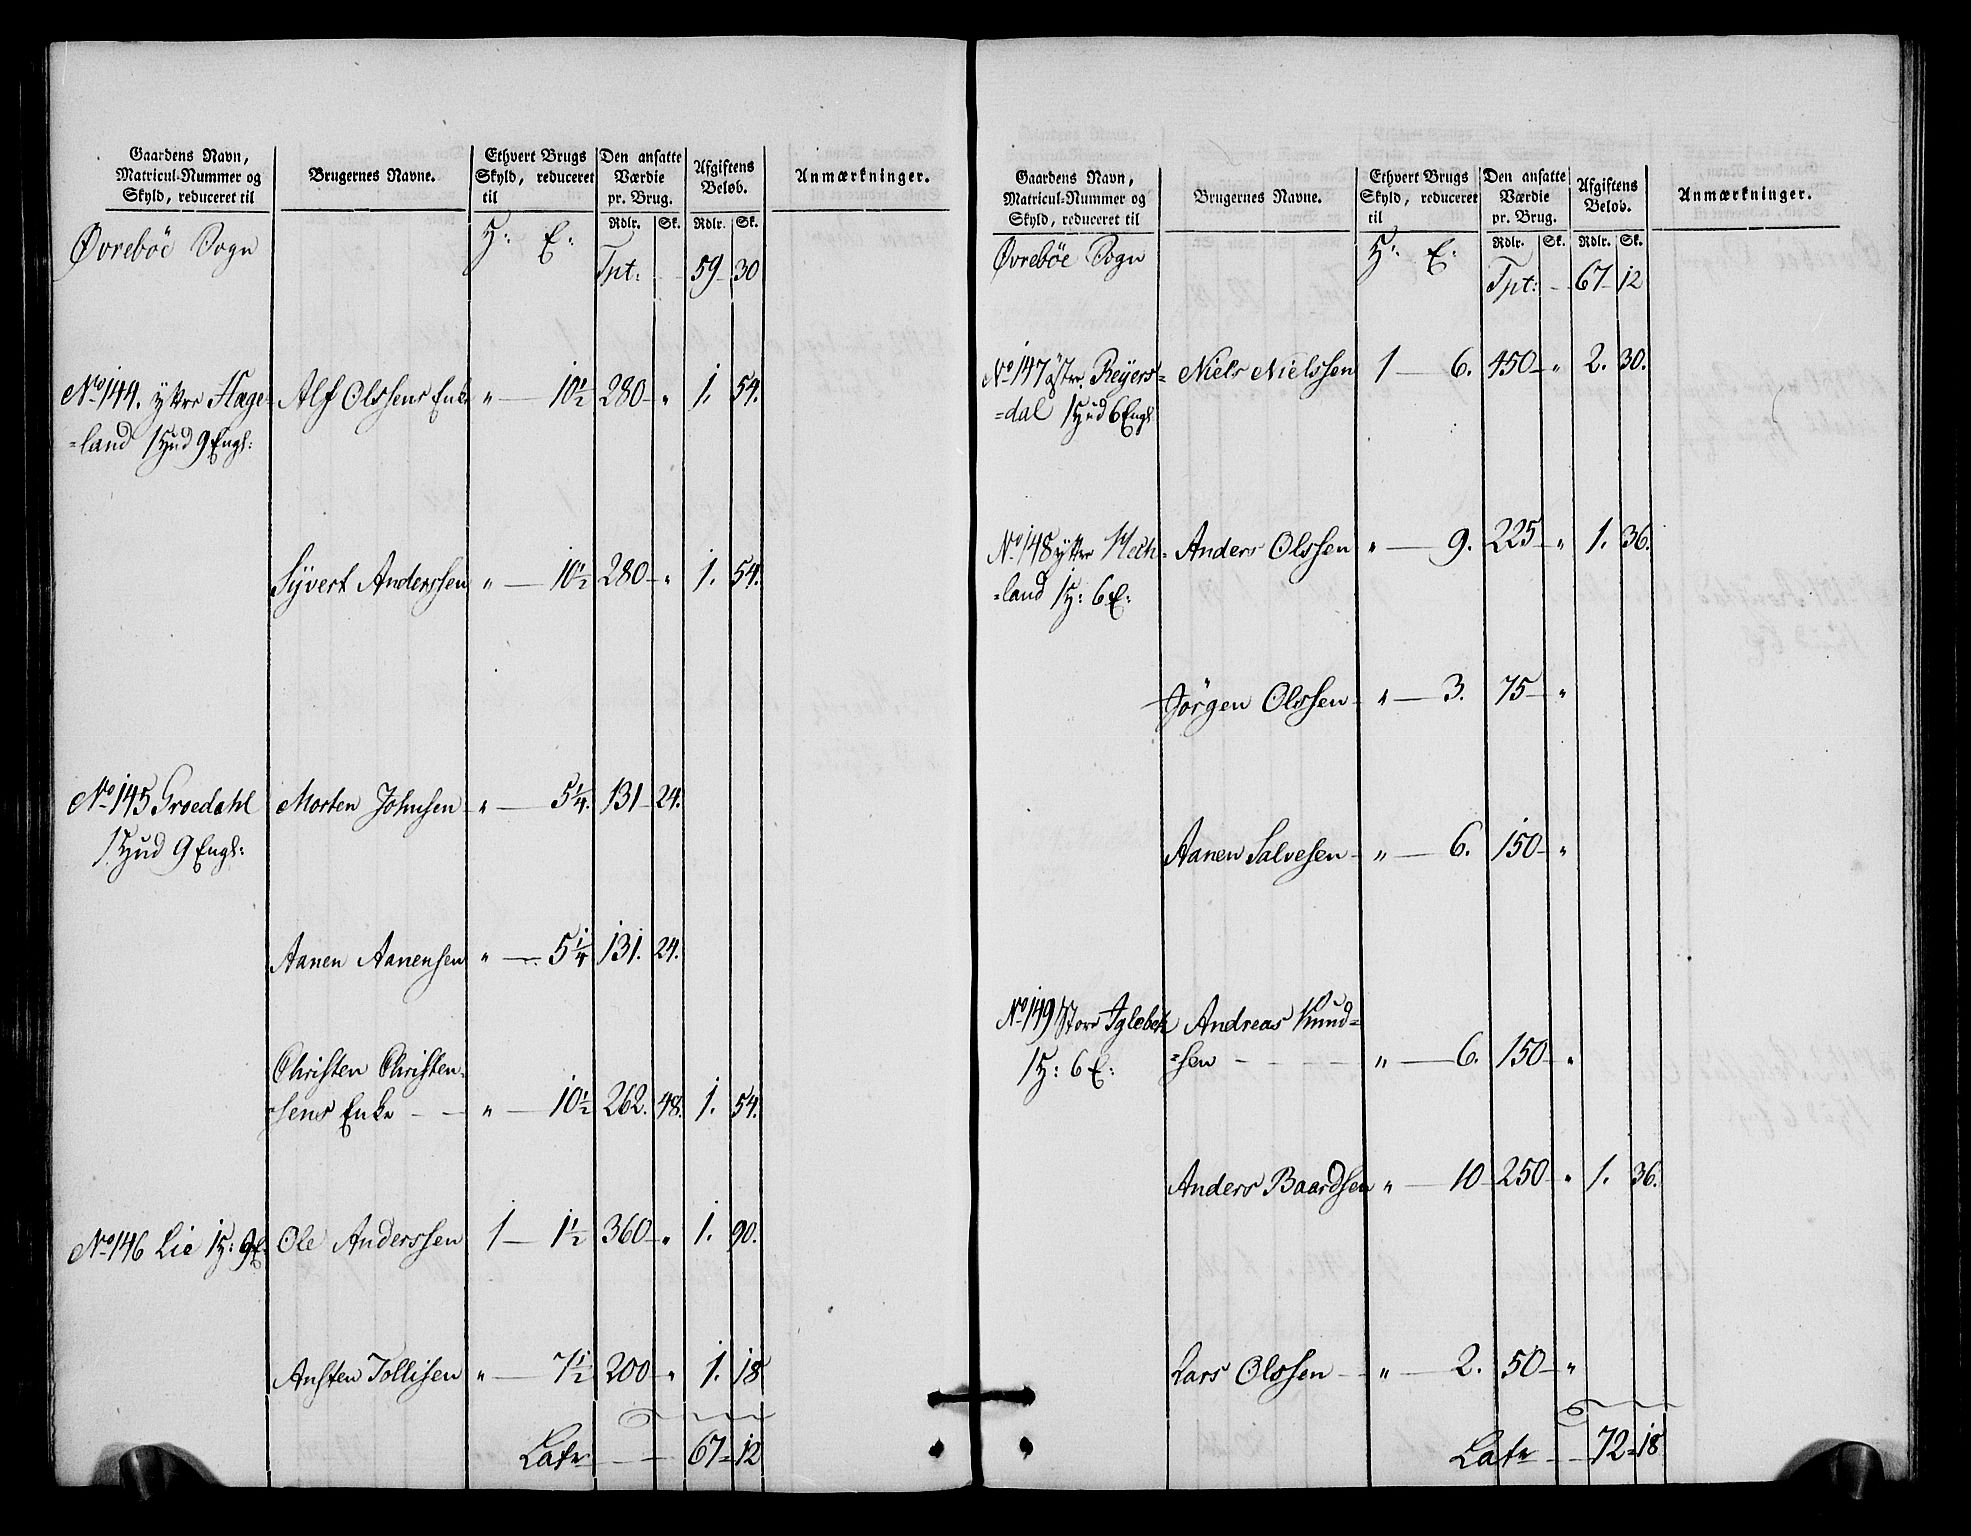 Gaardens Navn, Matricul-Nummer og Skyld, reduceret til | Brugernes Navne. | Ethvert Brugs Skyld, reduceret til | Den ansatte Værdie pr. Brug. | Afgiftens Beløb. | Anmærkninger.
Rdlr. Sk. Rdlr. Sk.
Øvreböe Sogn H: E: Tpt: – 59 – 30
No 144. yttre Hæge= Alf Olssens Enke " — 10½ 280 – " 1. 54.
=land 1 Hud 9 Engl:
Syvert Anderssen " — 10½ 280 – " 1. 54.
No 145 Groedahl Morten Johnsen " — 5¼. 131 – 24.
1 Hud 9 Engl:
Aanen Aanensen " — 5¼ 131. 24.
Christen Christen=
=sens Enke – – " — 10½ 262. 48. 1. 54.
No 146 Lie 1 H: 9 E. Ole Anderssen 1 — 1½ 360 – " 1. 90.
Austen Tollisen " — 7½ 200 – " 1. 18
Latr — — 67 = 12
Gaardens Navn, Matricul-Nummer og Skyld, reduceret til | Brugernes Navne. | Ethvert Brugs Skyld, reduceret til | Den ansatte Værdie pr. Brug. | Afgiftens Beløb. | Anmærkninger.
Rdlr. Sk. Rdlr. Sk.
Øvreböe Sogn H: E: Tpt: – 67 – 12
No 147 östre Reyers= Niels Nielssen 1 — 6. 450 – " 2. 30.
=dal 1 Hud 6 Engl
No 148 yttre Hech= Anders Olssen " — 9. 225 – " 1. 36.
=land 1 H: 6 E:
Jörgen Olssen – " — 3. 75 – "
Aanen Salvesen – " — 6. 150 – "
No 149 Store Iglebek Andreas Knud=
1 H: 6 E: =sen – – – " — 6. 150 – "
Anders Baardsen " — 10 250 – " 1. 36.
Lars Olssen – " — 2. 50 – "
Latr — — 72 = 18